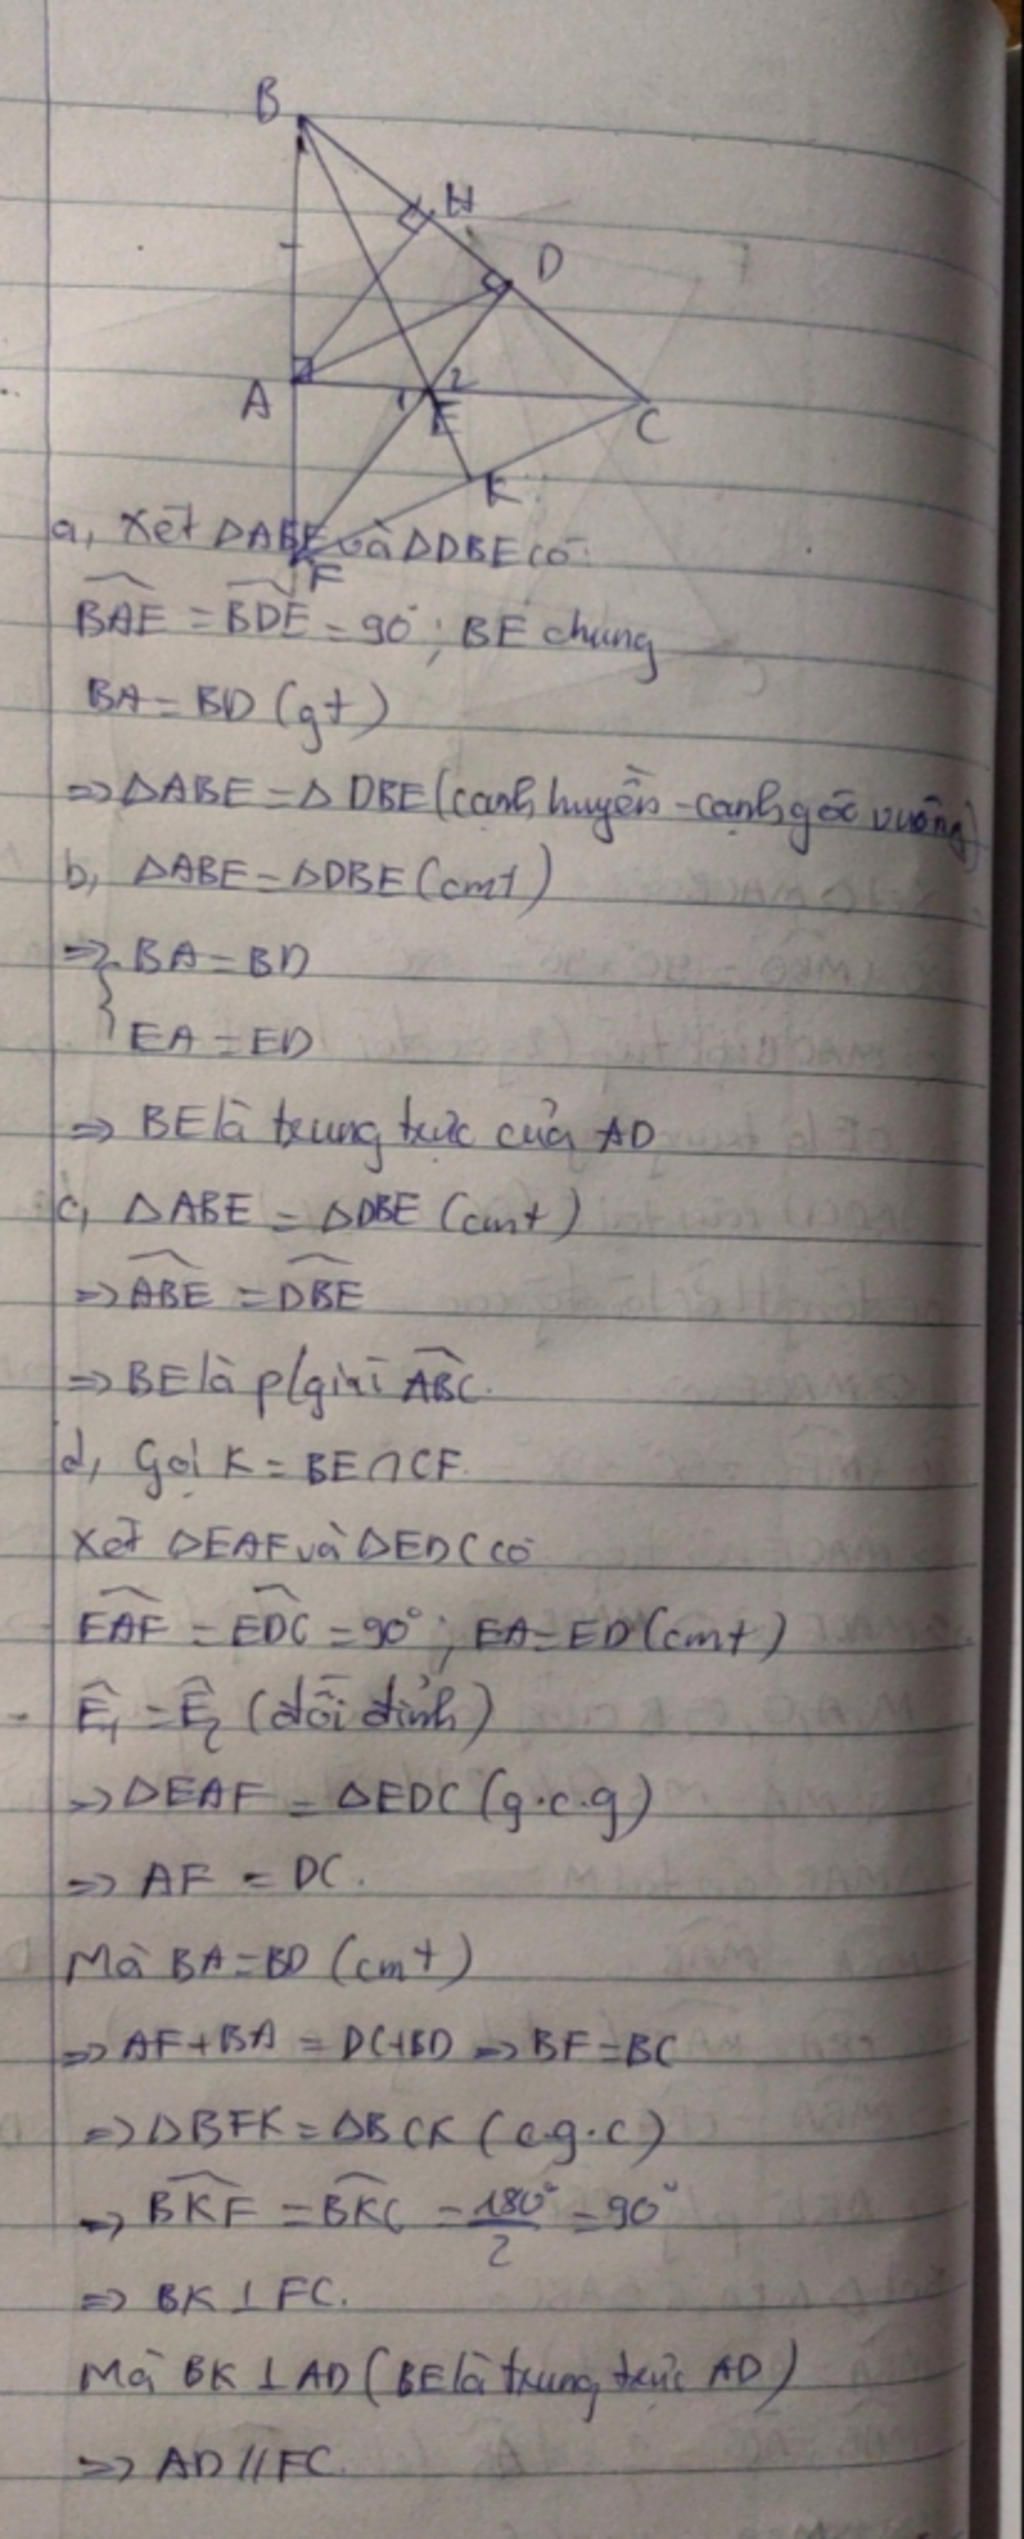 B
H
D
A
1
2
E
C
K
F
a, Xét ΔABE và ΔDBE có:
$\widehat{BAE}$ = $\widehat{BDE}$ = 90°; BE chung
BA = BD (gt)
=> ΔABE = Δ DBE (cạnh huyền - cạnh góc vuông)
b, ΔABE = ΔDBE (cmt)
=> { BA = BD
EA = ED
=> BE là trung trực của AD
c, ΔABE = ΔDBE (cmt)
=> $\widehat{ABE}$ = $\widehat{DBE}$
=> BE là p/giác $\widehat{ABC}$.
d, Gọi K = BE ∩ CF.
Xét ΔEAF và ΔEDC có
$\widehat{EAF}$ = $\widehat{EDC}$ = 90°; EA = ED (cmt)
$\widehat{E_1}$ = $\widehat{E_2}$ (đối đỉnh)
=> ΔEAF = ΔEDC (g.c.g)
=> AF = DC.
Mà BA = BD (cmt)
=> AF + BA = DC + BD => BF = BC
=> ΔBFK = ΔBCK (c.g.c)
=> $\widehat{BKF}$ = $\widehat{BKC}$ = $\frac{180°}{2}$ = 90°
=> BK ⊥ FC.
Mà BK ⊥ AD (BE là trung trực AD)
=> AD // FC.